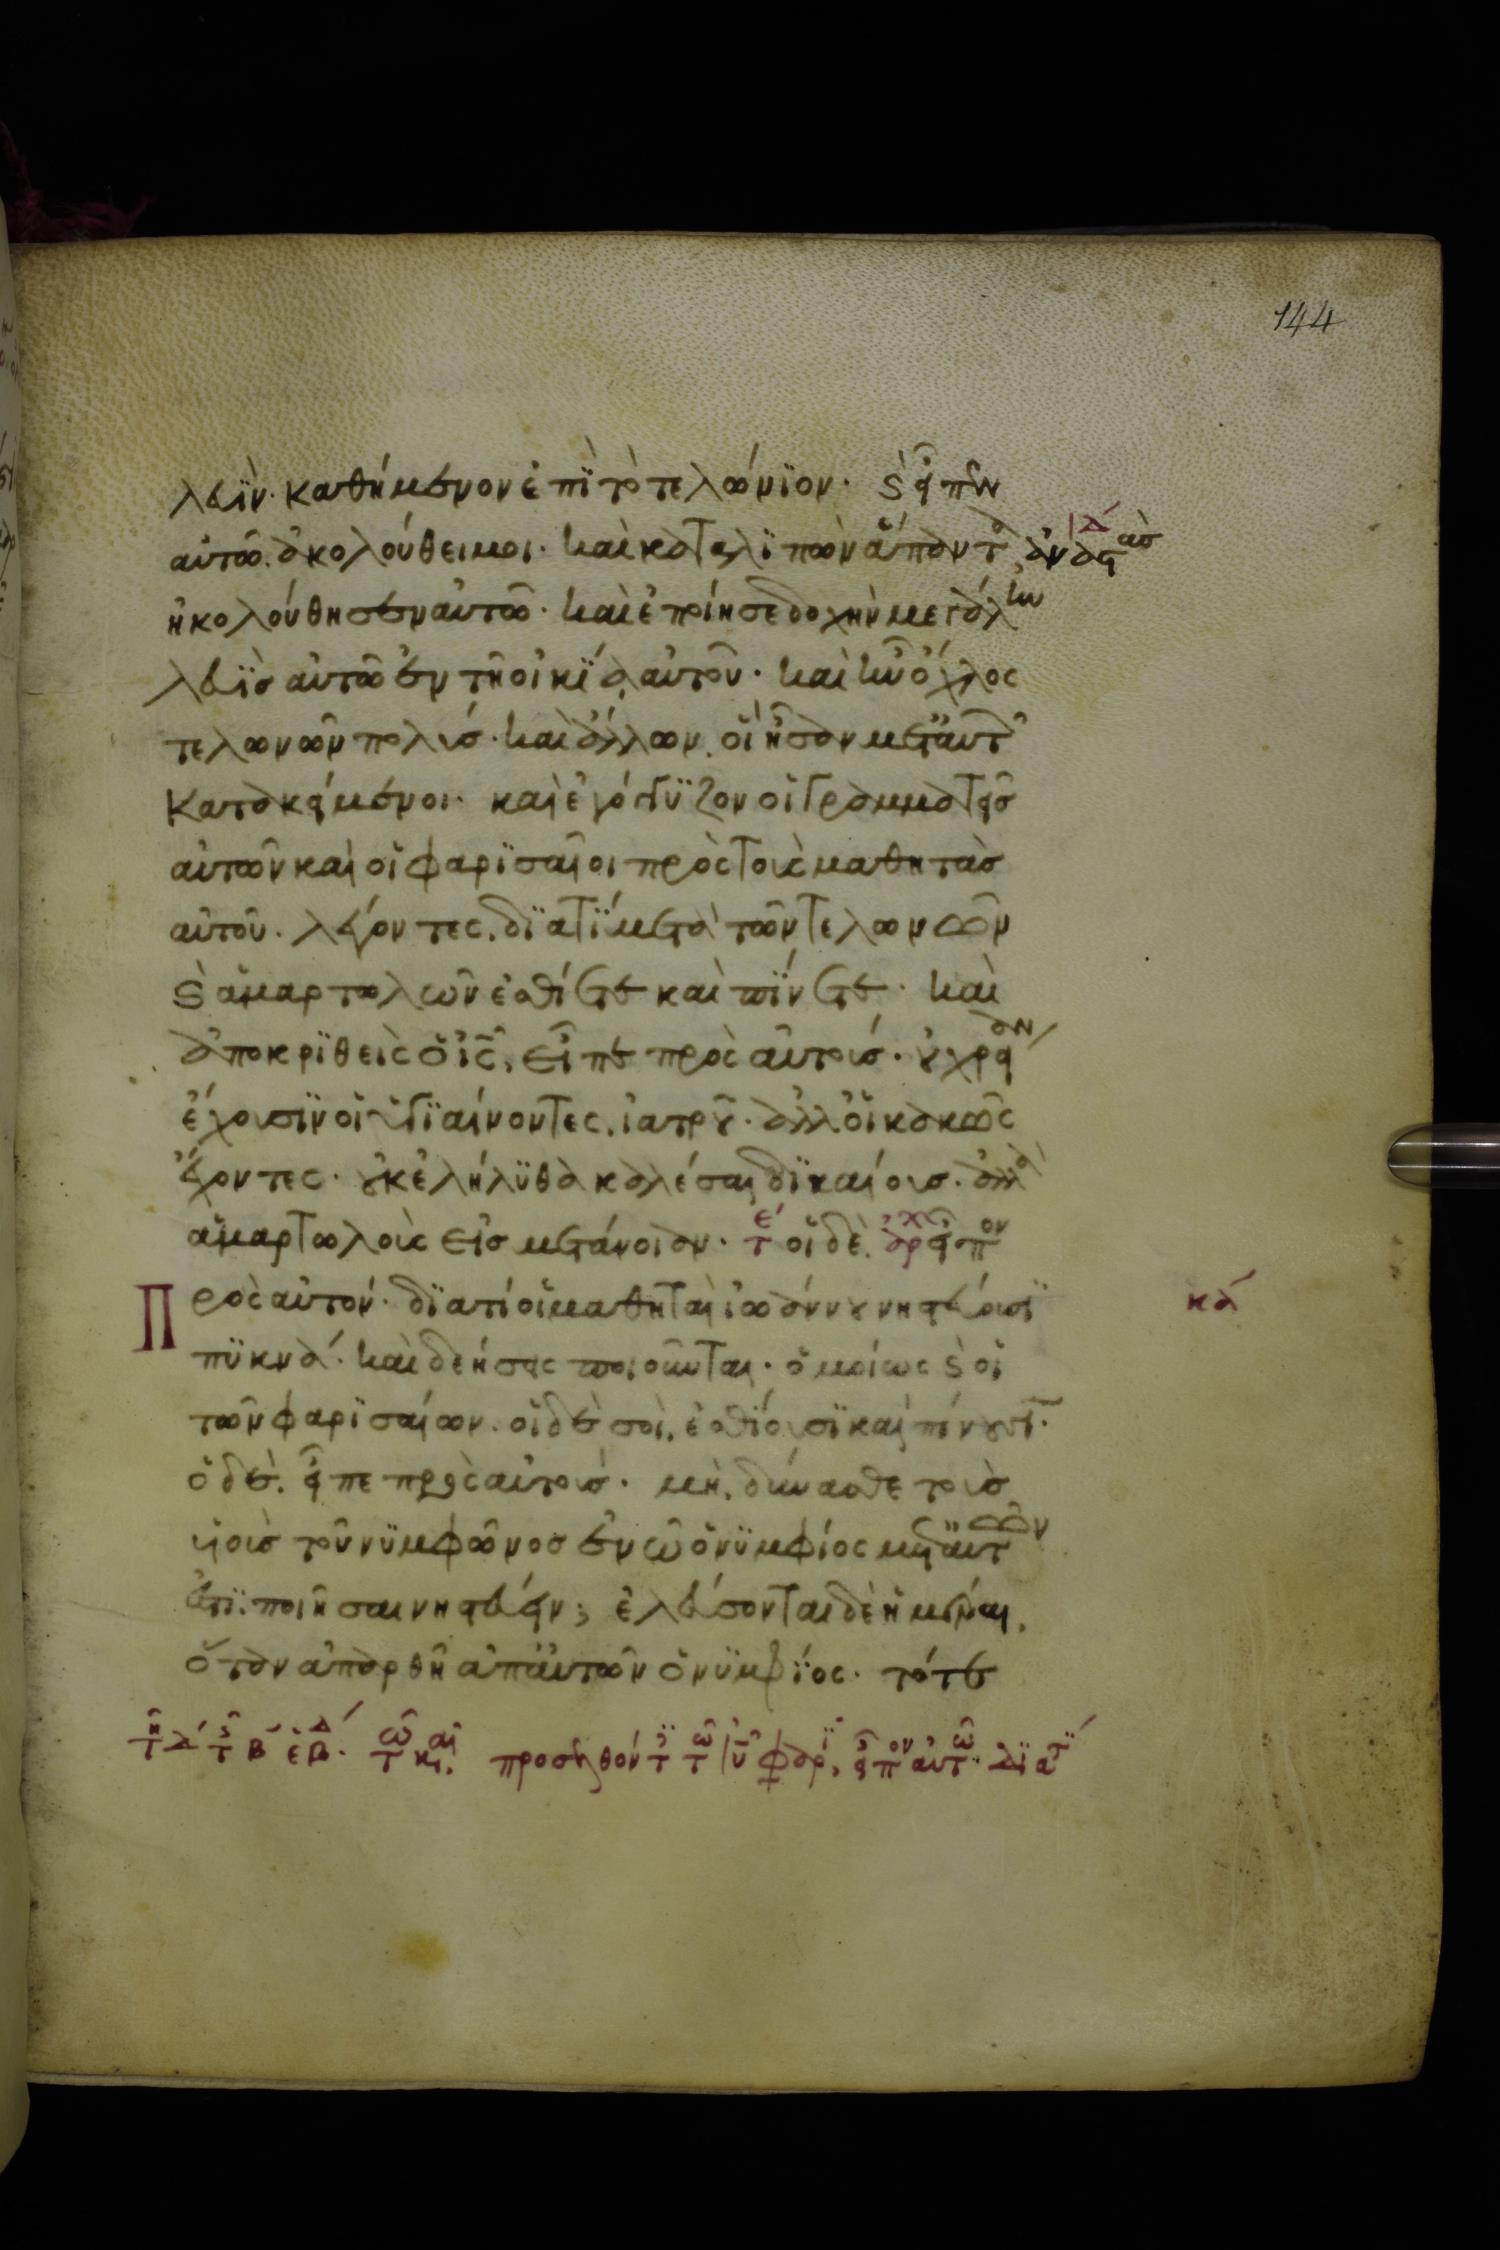 144
λευῒν· καθήμενον ἐπῒ τὸ τελώνϊον· ϛ̀ εἶπεν
αὐτῶ. ἀκολούθει μοι· καὶ καταλϊπὼν ἅπαντα, ἀναστὰσ
ἠκολούθησεν αὐτῶ· καὶ ἐποίησε δοχὴν μεγάλην
λευῒσ αὐτῶ ἐν τῆ οἰκΐα αὐτοῦ· καὶ ἦν ὄχλος
τελωνῶν πολύσ· καὶ ἄλλων. οἳ ἦσαν μετ αὐτοῦ
κατακείμενοι· καὶ ἐγόγγϋζον οἱ γραμματεῖσ
αὐτῶν καὶ οἱ φαρϊσαῖοι πρὸς τοὺς μαθητὰσ
αὐτοῦ. λέγοντες. δϊατΐ μετὰ τῶν τελωνῶν
ϛ̀ ἁμαρτωλῶν ἐσθίετε καὶ πΐνετε· καὶ
ἀποκρϊθεὶς ὁ ἰς, εἶπε πρὸς αὐτούσ· οὐ χρείαν
ἔχουσϊν οἱ ὑγϊαίνοντες. ἰατροῦ· ἀλλ οἱ κακῶς
ἔχοντες· οὐκ ἐλήλϋθα καλέσαι δϊκαίουσ. ἀλλὰ
ἁμαρτωλοὺς εἰσ μετάνοιαν· τε οἱ δὲ. ἀρχ εἶπον
κα
Πρὸς αὐτόν· δϊατί οἱ μαθηταὶ ἰωάννου νηστεύουσϊ
πϋκνά· καὶ δεήσεις ποιοῦνται· ὁμοίως ϛ̀ οἱ
τῶν φαρϊσαίων. οἱ δὲ σοὶ. ἐσθΐουσϊ καὶ πίνουσϊ·
ὁ δὲ. εἶπε πρὸς αὐτούσ· μὴ. δύνασθε τοὺσ
υἱοὺσ τοῦ νϋμφῶνοσ ἐν ὧ ὁ νϋμφίος μετ αὐτῶν
ἐστϊ. ποιῆσαι νηστεύειν; ἐλεύσονται δὲ ἡμέραι.
ὅταν ἀπαρθῆ ἀπ αὐτῶν ὁ νϋμφΐος· τότε